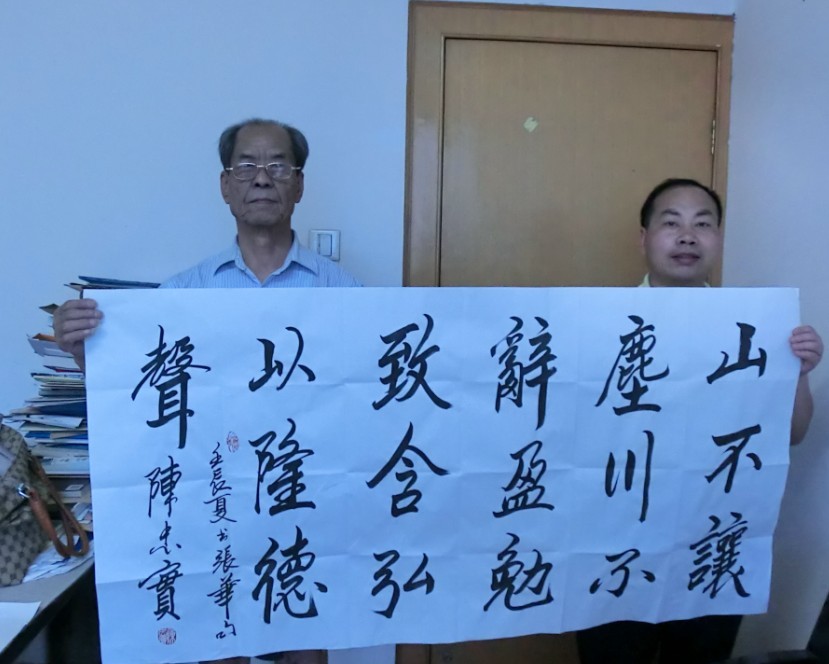 山不讓
塵川不
辭盈勉
致含弘
以隆德
聲
壬辰夏書張華句
陳忠實